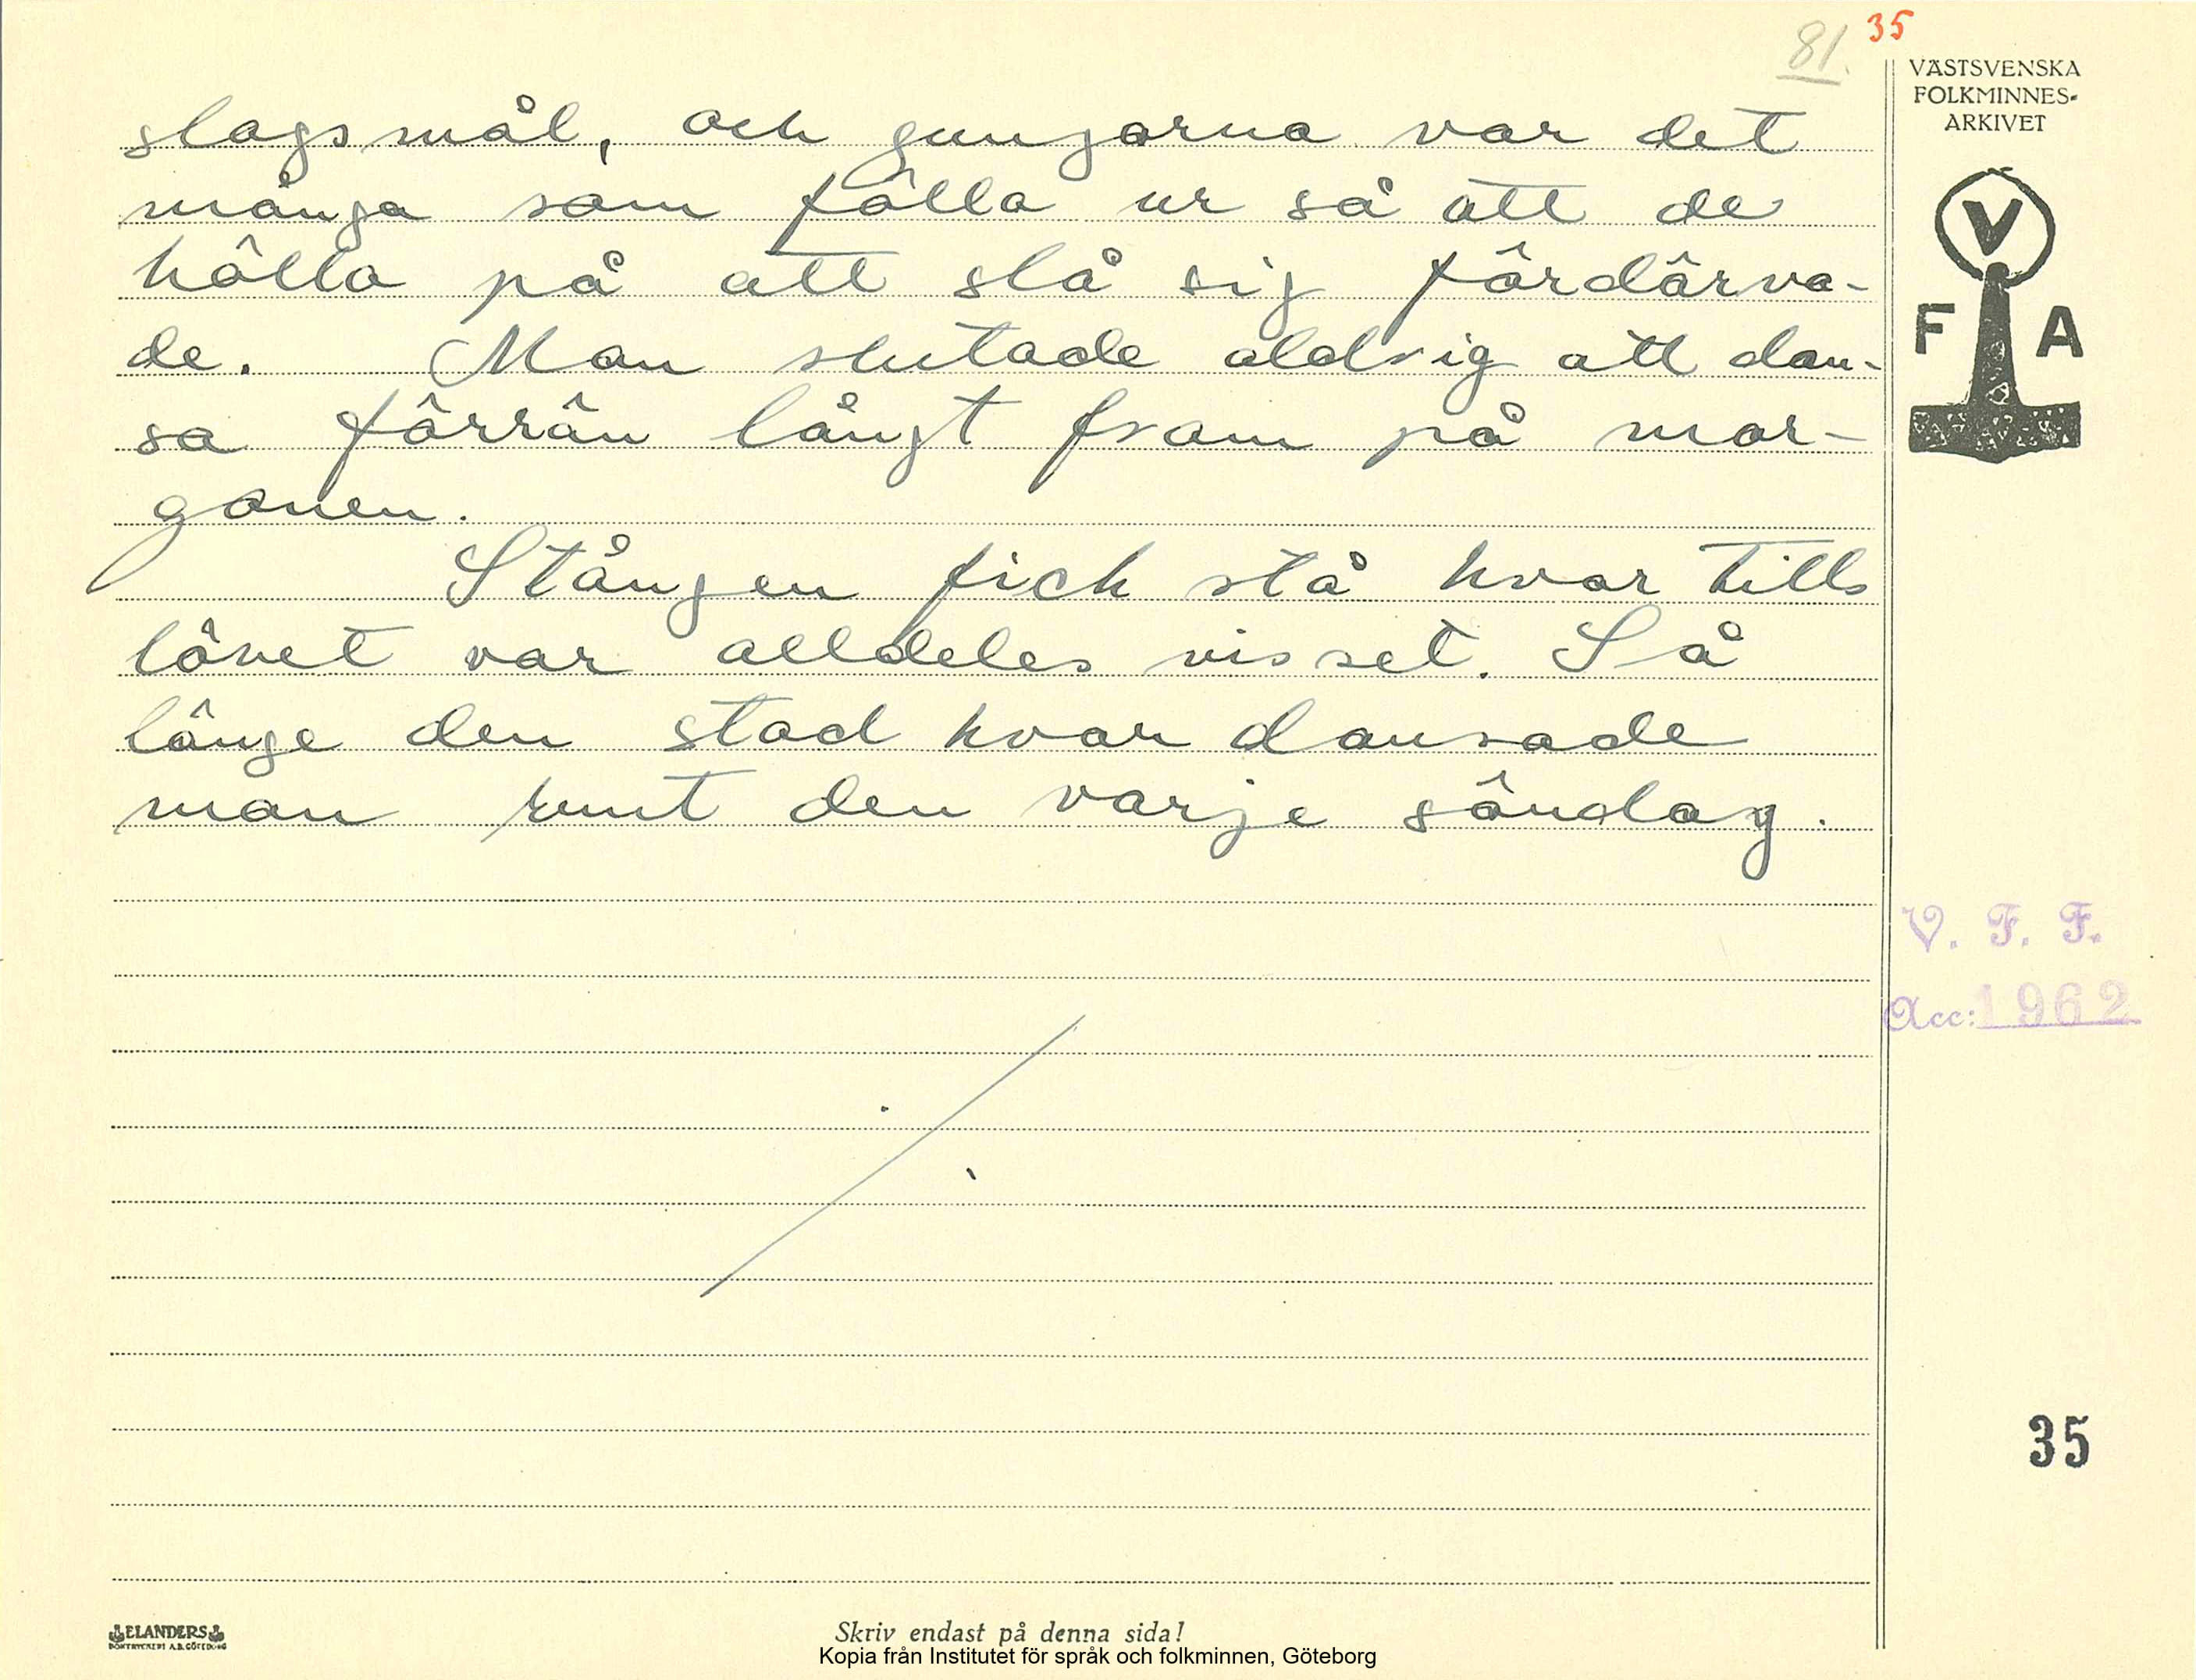 81. 35
VÄSTSVENSKA
FOLKMINNES-
ARKIVET
V
F A
slagsmål, och gungorna var det
många som fölla ur så att de
hölla på att slå sig fördärva-
de. Man slutade aldrig att dan-
sa förrän långt fram på mor-
gonen.
Stången fick stå kvar tills
lövet var alldeles visset. Så
länge den stod kvar dansade
man runt den varje söndag.
V. F. F.
Acc: 1962
35
ELANDERS
BOKTRYCKERI A.B. GÖTEBORG
Skriv endast på denna sida!
Kopia från Institutet för språk och folkminnen, Göteborg